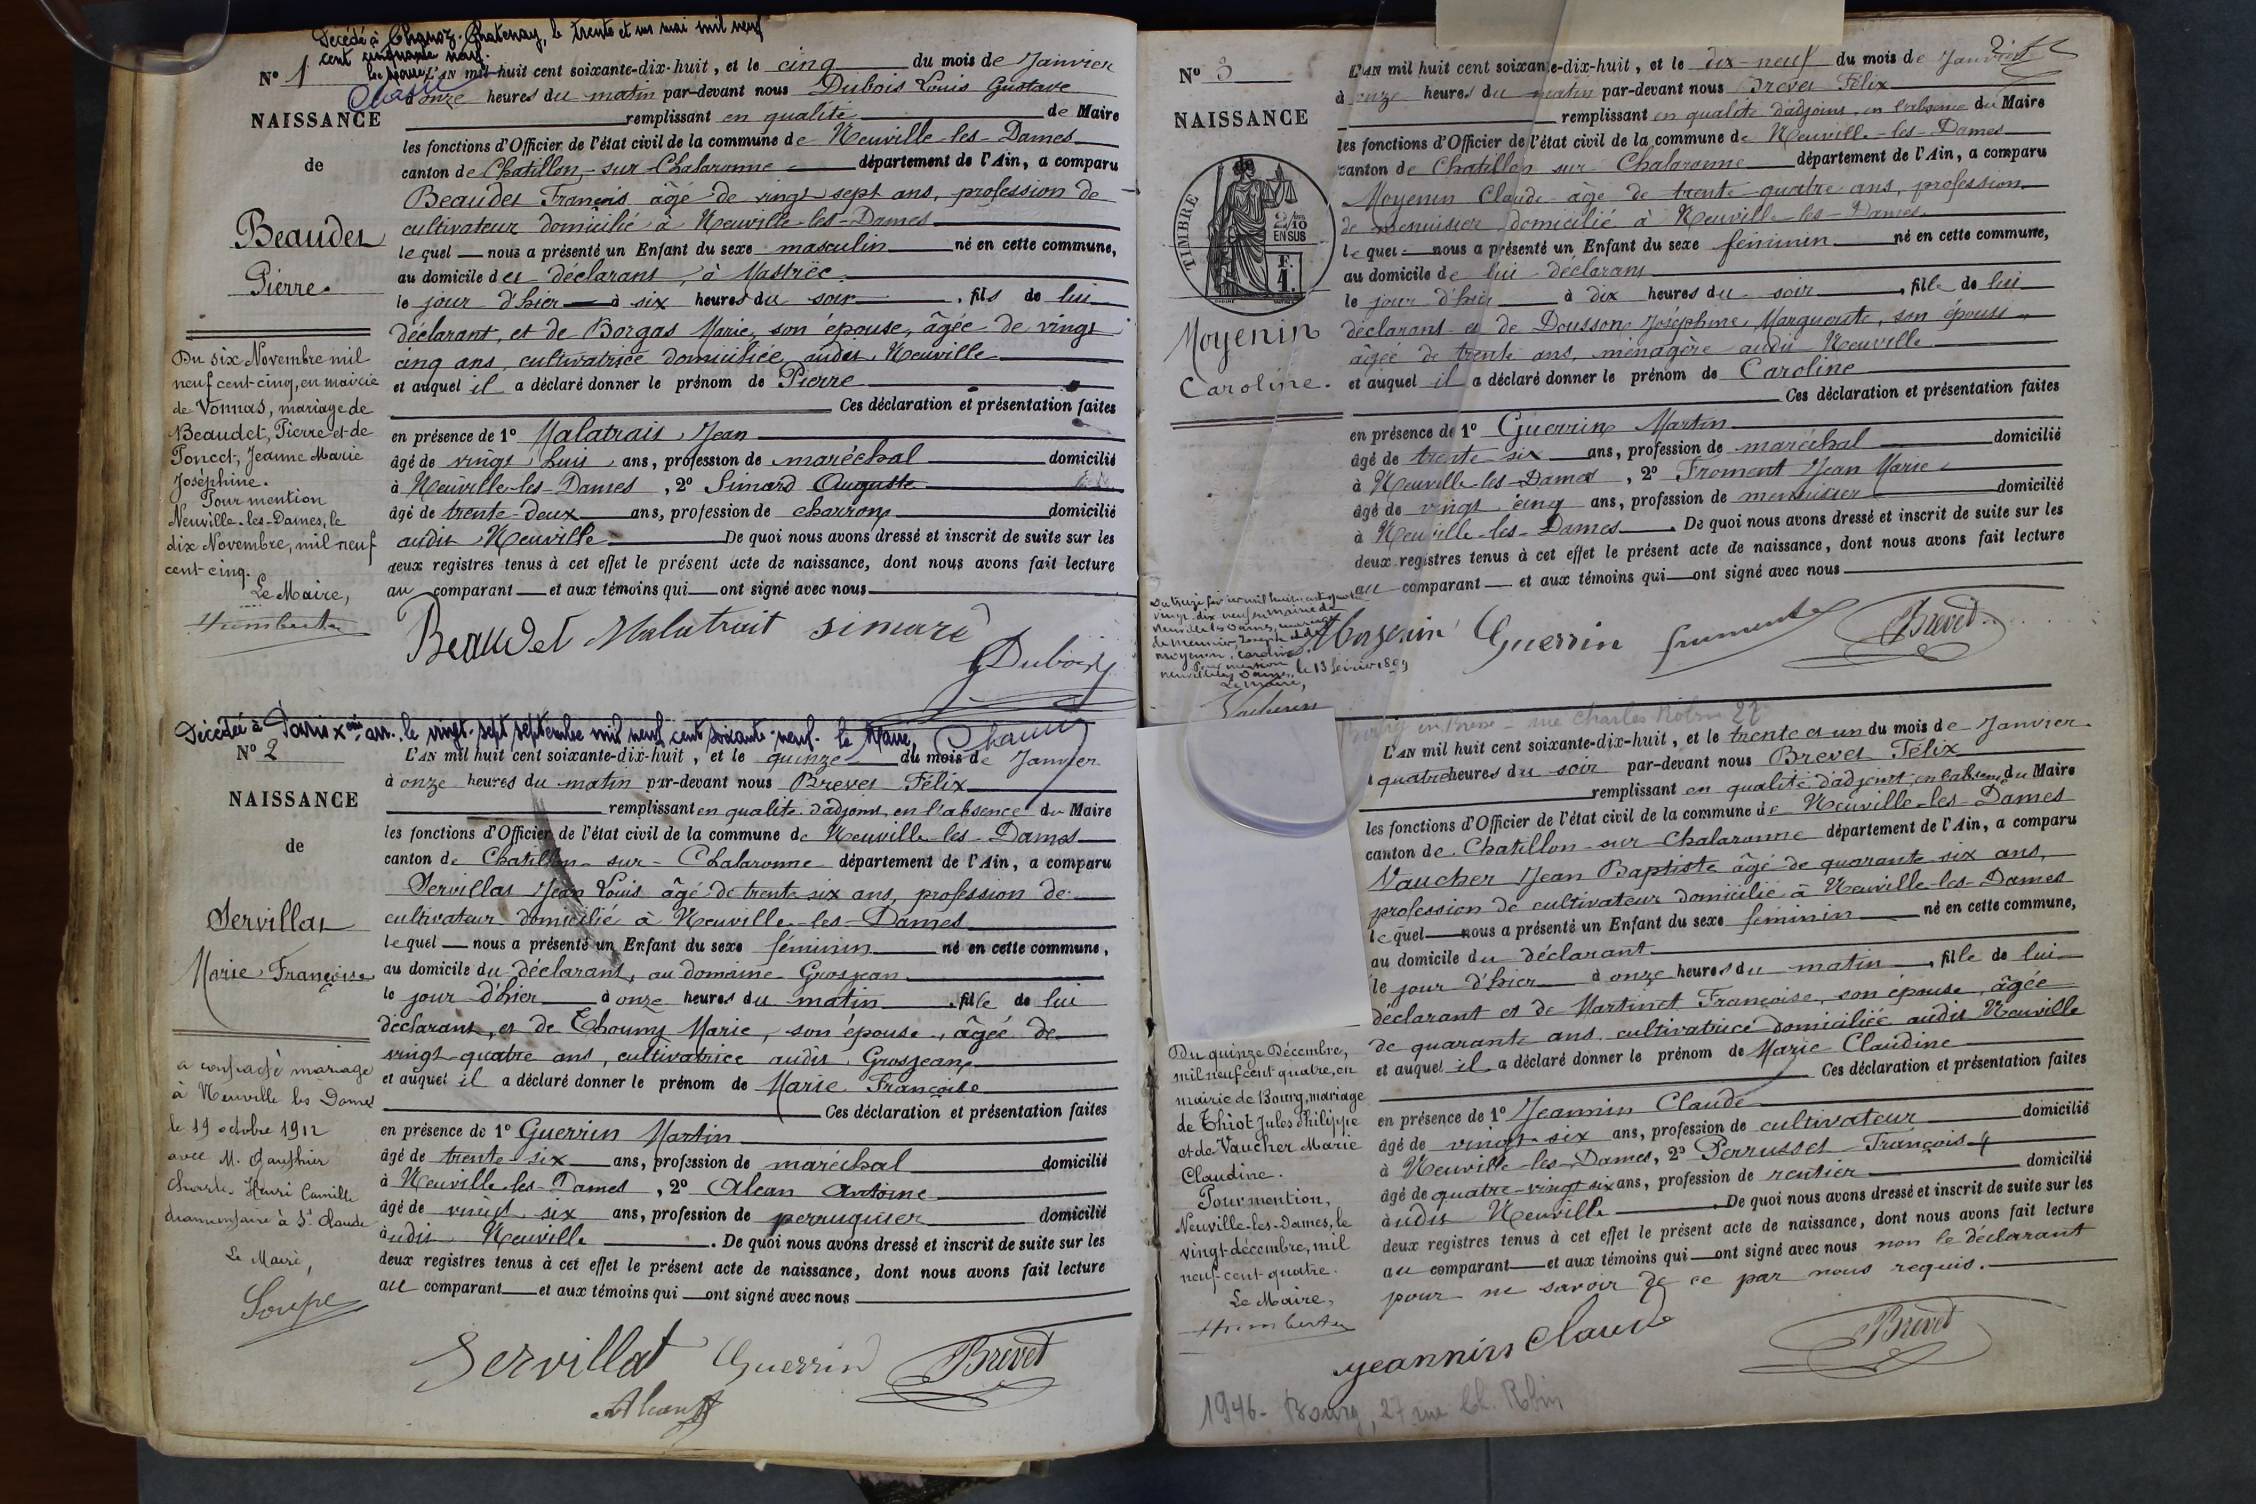 Décédé à Chanoz-Chatenay, le trente et un mai mil neuf
cent cinquante neuf.
N° 1
L'AN mil huit cent soixante-dix-huit, et le cinq du mois de Janvier
à onze heures du matin par-devant nous Dubois Louis Gustave
remplissant en qualité de Maire
les fonctions d'Officier de l'état civil de la commune de Neuville-les-Dames
canton de Chatillon-sur-Chalaronne département de l'Ain, a comparu
Beaudet François âgé de vingt sept ans, profession de
cultivateur domicilié à Neuville-les-Dames
lequel nous a présenté un Enfant du sexe masculin né en cette commune,
au domicile du déclarant, à
le jour d'hier à six heures du soir, fils de lui
déclarant, et de Borgas Marie, son épouse, âgée de vingt
cinq ans, cultivatrice domiciliée audit Neuville
et auquel il a déclaré donner le prénom de Pierre
Ces déclaration et présentation faites
en présence de 1° Malatrait Jean
âgé de vingt huit ans, profession de maréchal domicilié
à Neuville-les-Dames, 2° Simard Auguste
âgé de trente-deux ans, profession de charron domicilié
audit Neuville De quoi nous avons dressé et inscrit de suite sur les
deux registres tenus à cet effet le présent acte de naissance, dont nous avons fait lecture
au comparant et aux témoins qui ont signé avec nous
Beaudet Malatrait simard
Dubois
NAISSANCE
de
Beaudet
Pierre
Du six Novembre mil
neuf cent cinq, en mairie
de Vonnas, mariage de
Beaudet, Pierre et de
Poncet, Jeanne Marie
Joséphine.
Pour mention
Neuville-les-Dames, le
dix Novembre, mil neuf
cent cinq.
Le Maire,
Humbert
Décédée à Paris X me arr. le vingt-sept septembre mil neuf cent soixante-neuf. le Maire,
N° 2
L'AN mil huit cent soixante-dix-huit, et le quinze du mois de Janvier
à onze heures du matin par-devant nous Brevet Félix
remplissant en qualité d'adjoint, en l'absence du Maire
les fonctions d'Officier de l'état civil de la commune de Neuville-les-Dames
canton de Chatillon-sur-Chalaronne département de l'Ain, a comparu
Servillat Jean Louis âgé de trente six ans, profession de
cultivateur domicilié à Neuville-les-Dames
lequel nous a présenté un Enfant du sexe féminin né en cette commune,
au domicile du déclarant, au domaine Grosjean
le jour d'hier à onze heures du matin, fille de lui
déclarant, et de Thoumy Marie, son épouse, âgée de
vingt-quatre ans, cultivatrice audit Grosjean
et auquel il a déclaré donner le prénom de Marie Françoise
Ces déclaration et présentation faites
en présence de 1° Guerrin Martin
âgé de trente-six ans, profession de maréchal domicilié
à Neuville-les-Dames, 2° Alean Antoine
âgé de vingt six ans, profession de perruquier domicilié
audit Neuville. De quoi nous avons dressé et inscrit de suite sur les
deux registres tenus à cet effet le présent acte de naissance, dont nous avons fait lecture
au comparant et aux témoins qui ont signé avec nous
Servillat Guerrin Brevet
Alean
NAISSANCE
de
Servillat
Marie Françoise
a contracté mariage
à Neuville les Dames
le 19 octobre 1912
avec M. Gauthier
Charles Henri Camille
à St Claude
Le Maire,
Soupe
N° 3
L'AN mil huit cent soixante-dix-huit, et le dix-neuf du mois de Janvier
à onze heures du matin par-devant nous Brevet Félix
remplissant en qualité d'adjoint, en l'absence du Maire
les fonctions d'Officier de l'état civil de la commune de Neuville-les-Dames
canton de Chatillon sur Chalaronne département de l'Ain, a comparu
Moyenin Claude âgé de trente-quatre ans, profession
de menuisier domicilié à Neuville-les-Dames
lequel nous a présenté un Enfant du sexe féminin né en cette commune,
au domicile de lui déclarant
le jour d'hier à dix heures du soir, fille de lui
déclarant et de Dousson Joséphine Marguerite, son épouse
âgée de trente ans, ménagère audit Neuville
et auquel il a déclaré donner le prénom de Caroline
Ces déclaration et présentation faites
en présence de 1° Guerrin Martin
âgé de trente six ans, profession de maréchal domicilié
à Neuville-les-Dames, 2° Froment Jean Marie
âgé de vingt cinq ans, profession de menuisier domicilié
à Neuville-les-Dames. De quoi nous avons dressé et inscrit de suite sur les
deux registres tenus à cet effet le présent acte de naissance, dont nous avons fait lecture
au comparant et aux témoins qui ont signé avec nous
Moyenin Guerrin froment Brevet
NAISSANCE
TIMBRE
2/10
EN SUS
F.
1.
Moyenin
Caroline.
Du treize février mil huit cent quatre
vingt-dix neuf en mairie de
Neuville les Dames, mariage
de Meunier Joseph et de
Moyenin, Caroline.
Pour mention
Neuville les Dames, le 13 février 1899
Le Maire,
Vacheron
en Bresse - rue Charles Robin 27
L'AN mil huit cent soixante-dix-huit, et le trente et un du mois de Janvier
quatre heures du soir par-devant nous Brevet Félix
remplissant en qualité d'adjoint, en l'absence du Maire
les fonctions d'Officier de l'état civil de la commune de Neuville-les-Dames
canton de Chatillon-sur-Chalaronne département de l'Ain, a comparu
Vaucher Jean Baptiste âgé de quarante six ans,
profession de cultivateur domicilié à Neuville-les-Dames
lequel nous a présenté un Enfant du sexe féminin né en cette commune,
au domicile du déclarant
le jour d'hier à onze heures du matin, fille de lui
déclarant et de Martinet Françoise, son épouse, âgée
de quarante ans, cultivatrice domiciliée audit Neuville
et auquel il a déclaré donner le prénom de Marie Claudine
Ces déclaration et présentation faites
en présence de 1° Jeannin Claude
âgé de vingt-six ans, profession de cultivateur domicilié
à Neuville-les-Dames, 2° Perrusset François
âgé de quatre-vingt six ans, profession de rentier domicilié
audit Neuville. De quoi nous avons dressé et inscrit de suite sur les
deux registres tenus à cet effet le présent acte de naissance, dont nous avons fait lecture
au comparant et aux témoins qui ont signé avec nous non le déclarant
pour ne savoir de ce par nous requis.
jeannin claude Brevet
Du quinze Décembre,
mil neuf cent quatre, en
mairie de Bourg, mariage
de Thiot Jules Philippe
et de Vaucher Marie
Claudine.
Pour mention,
Neuville-les-Dames, le
vingt décembre, mil
neuf-cent-quatre.
Le Maire,
Humbert
1946 - Bourg, 27 rue Ch. Robin